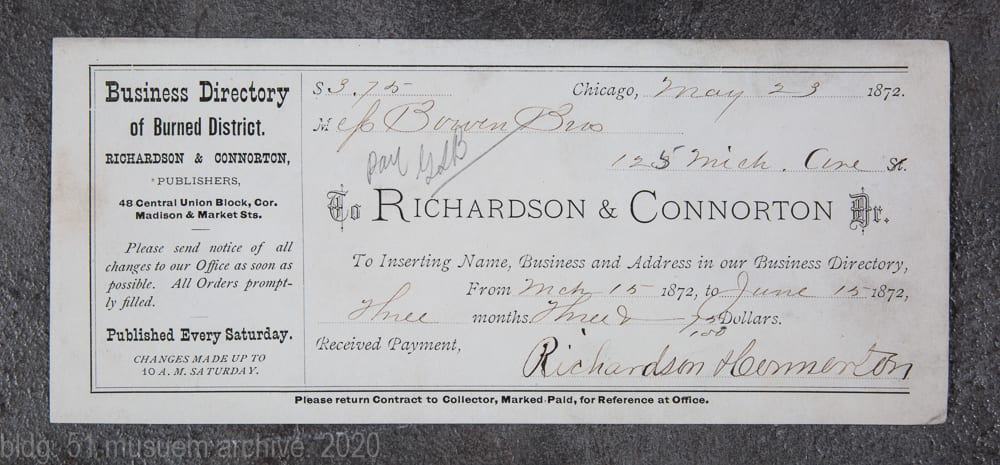 Business Directory
of Burned District.
RICHARDSON & CONNORTON,
PUBLISHERS,
48 Central Union Block, Cor.
Madison & Market Sts.
Please send notice of all
changes to our Office as soon as
possible. All Orders prompt-
ly filled.
Published Every Saturday.
CHANGES MADE UP TO
10 A. M. SATURDAY.
$ 3.75 Chicago, May 23 1872.
M Bowen Bros
pay
125 Mich. Ave St.
To RICHARDSON & CONNORTON Dr.
To Inserting Name, Business and Address in our Business Directory,
From Mch 15 1872, to June 15 1872,
Three months. Three & 75/100 Dollars.
Received Payment,
Richardson & Connorton
Please return Contract to Collector, Marked Paid, for Reference at Office.
bldg: 51 musuem archive. 2020